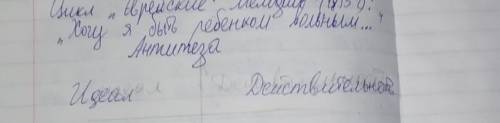 Цикл „Еврейские мелодии" (1815):
„Хочу я быть ребенком вольным..."
Антитеза
Идеал Действительность